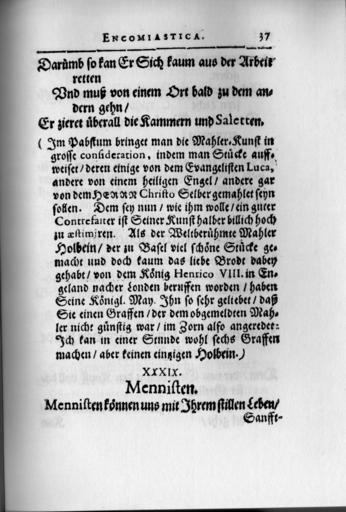 ENCOMIASTICA. 37
Darůmb so kan Er Sich kaum aus der Arbeit
retten
Vnd muß von einem Ort bald zu dem an-
dern gehn /
Er zieret überall die Kammern und Saletten.
( Im Pabstum bringet man die Mahler-Kunst in
grosse consideration, indem man Stücke auff-
weiset / deren einige von dem Evangelisten Luca,
andere von einem heiligen Engel / andere gar
von dem HERRN Christo Selber gemahlet seyn
sollen. Dem sey nun / wie ihm wolle / ein guter
Contrefaiter ist Seiner Kunst halber billich hoch
zu æstimiren. Als der Weltberühmte Mahler
Holbein / der zu Basel viel schöne Stücke ge-
macht und doch kaum das liebe Brodt dabey
gehabt / von dem König Henrico VIII. in En-
geland nacher Londen beruffen worden / haben
Seine Königl. May. Ihn so sehr geliebet / daß
Sie einen Graffen / der dem obgemeldten Mah-
ler nicht günstig war / im Zorn also angeredet:
Ich kan in einer Stunde wohl sechs Graffen
machen / aber keinen einzigen Holbein. )
XXXIX.
Mennisten.
Mennisten können uns mit Ihrem stillen Leben /
Sanfft-